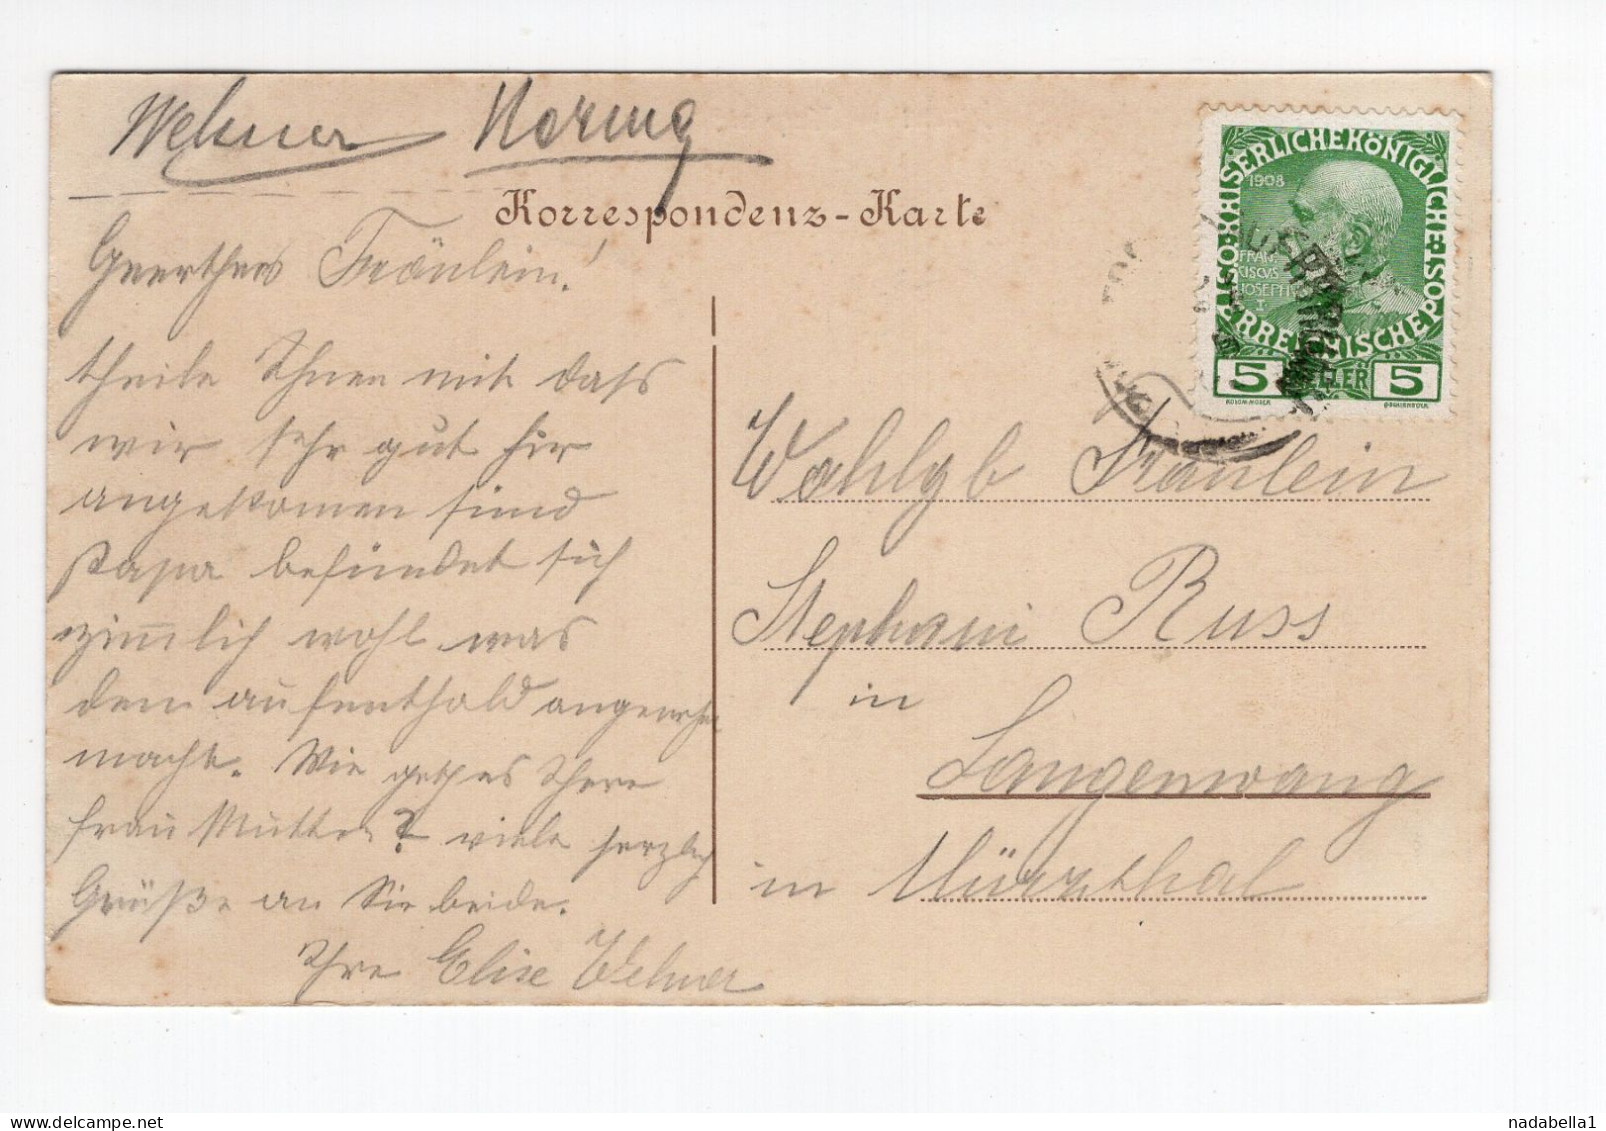 Welner Noring
Korrespondenz-Karte
Geerthes Fräulein!
theile Ihnen mit dass
wir sehr gut hir
angekomen sind
Papa befindet sich
zimlich wohl was
den aufenthald angenehm
macht. Wie geht es Ihrer
frau Mutter? viele herzlich
Grüße an Sie beide.
Ihre Elise Welner
KAISERLICHE KÖNIGLICHE ÖSTERREICHISCHE POST
1908
FRAN
CISCVS
JOSEPH
I
5 HELLER 5
Wohlgb Fräulein
Stephanie Russ
in
Langenwang
in Mürzthal
nadabella1